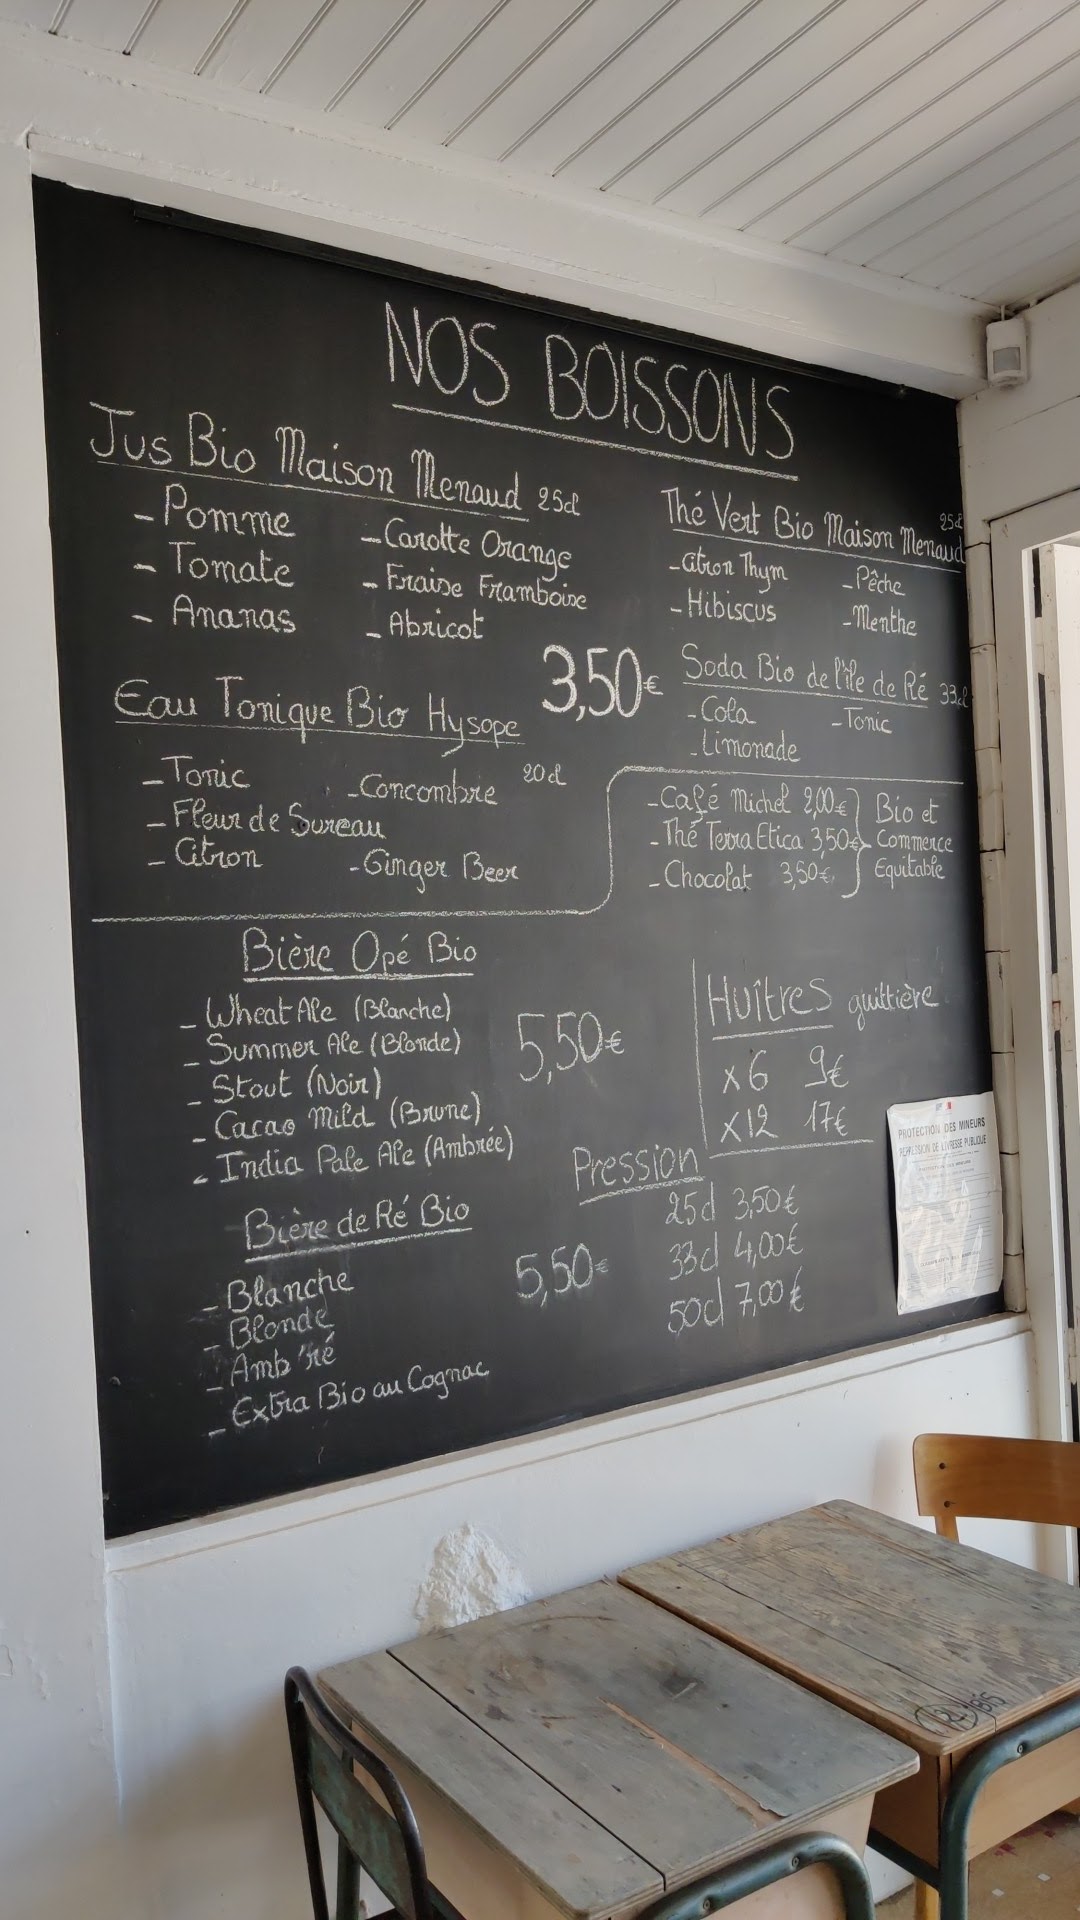 NOS BOISSONS
Jus Bio Maison Menaud 25cl
- Pomme
- Tomate
- Ananas
- Carotte Orange
- Fraise Framboise
- Abricot
Thé Vert Bio Maison Menaud 25cl
- Citron Thym
- Hibiscus
- Pêche
- Menthe
3,50€
Soda Bio de l'île de Ré 33cl
- Cola
- Limonade
- Tonic
Eau Tonique Bio Hysope
20cl
- Tonic
- Fleur de Sureau
- Citron
- Concombre
- Ginger Beer
- Café Michel 2,00€
- Thé Terra Etica 3,50€
- Chocolat 3,50€
Bio et
Commerce
Equitable
Bière Opé Bio
- Wheat Ale (Blanche)
- Summer Ale (Blonde)
- Stout (Noir)
- Cacao Mild (Brune)
- India Pale Ale (Ambrée)
5,50€
Huîtres guittière
x6 9€
x12 17€
Bière de Ré Bio
- Blanche
- Blonde
- Amb'ré
- Extra Bio au Cognac
5,50€
Pression
25cl 3,50€
33cl 4,00€
50cl 7,00€
PROTECTION DES MINEURS
RÉPRESSION DE L'IVRESSE PUBLIQUE
BIS